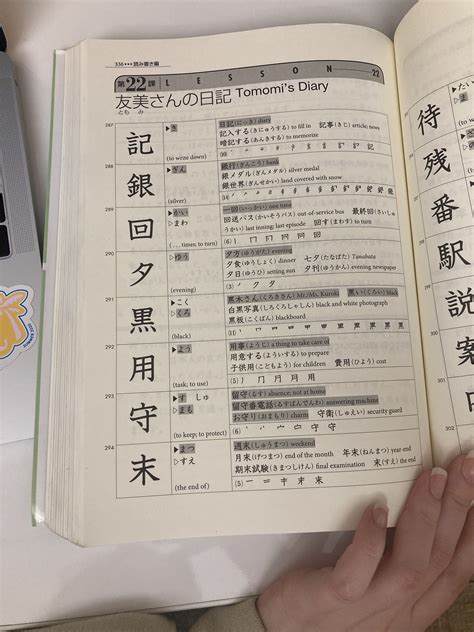 336●●●読み書き編
第22課 LESSON 22
友美さんの日記 Tomomi's Diary
とも み
287
記
▶き
(to write down)
日記(にっき) diary
記入する(きにゅうする) to fill in 記事(きじ) article; news
暗記する(あんきする) to memorize
(10)
288
銀
▶ぎん
(silver)
銀行(ぎんこう) bank
銀メダル(ぎんメダル) silver medal
銀世界(ぎんせかい) land covered with snow
(14)
289
回
▶かい
▷まわ
(. . . times; to turn)
一回(いっかい) one time
回送バス(かいそうバス) out-of-service bus 最終回(さいしゅ
うかい) last inning; last episode 回す(まわす) to turn
(6)
290
夕
▷ゆう
(evening)
夕方(ゆうがた) evening
夕食(ゆうしょく) dinner 七夕(たなばた) Tanabata
夕日(ゆうひ) setting sun 夕刊(ゆうかん) evening newspaper
(3)
291
黒
▷こく
▷くろ
(black)
黒木さん(くろきさん) Mr./Ms. Kuroki 黒い(くろい) black
白黒写真(しろくろしゃしん) black and white photograph
黒板(こくばん) blackboard
(11)
292
用
▶よう
(task; to use)
用事(ようじ) a thing to take care of
用意する(よういする) to prepare
子供用(こどもよう) for children 費用(ひよう) cost
(5)
293
守
▶す しゅ
▷まも
(to keep; to protect)
留守(るす) absence; not at home
留守番電話(るすばんでんわ) answering machine
お守り(おまもり) charm 守衛(しゅえい) security guard
(6)
294
末
▶まつ
▷すえ
(the end of)
週末(しゅうまつ) weekend
月末(げつまつ) end of the month 年末(ねんまつ) year end
期末試験(きまつしけん) final examination 末(すえ) the end
(5)
待
残
番
駅
説
案
302